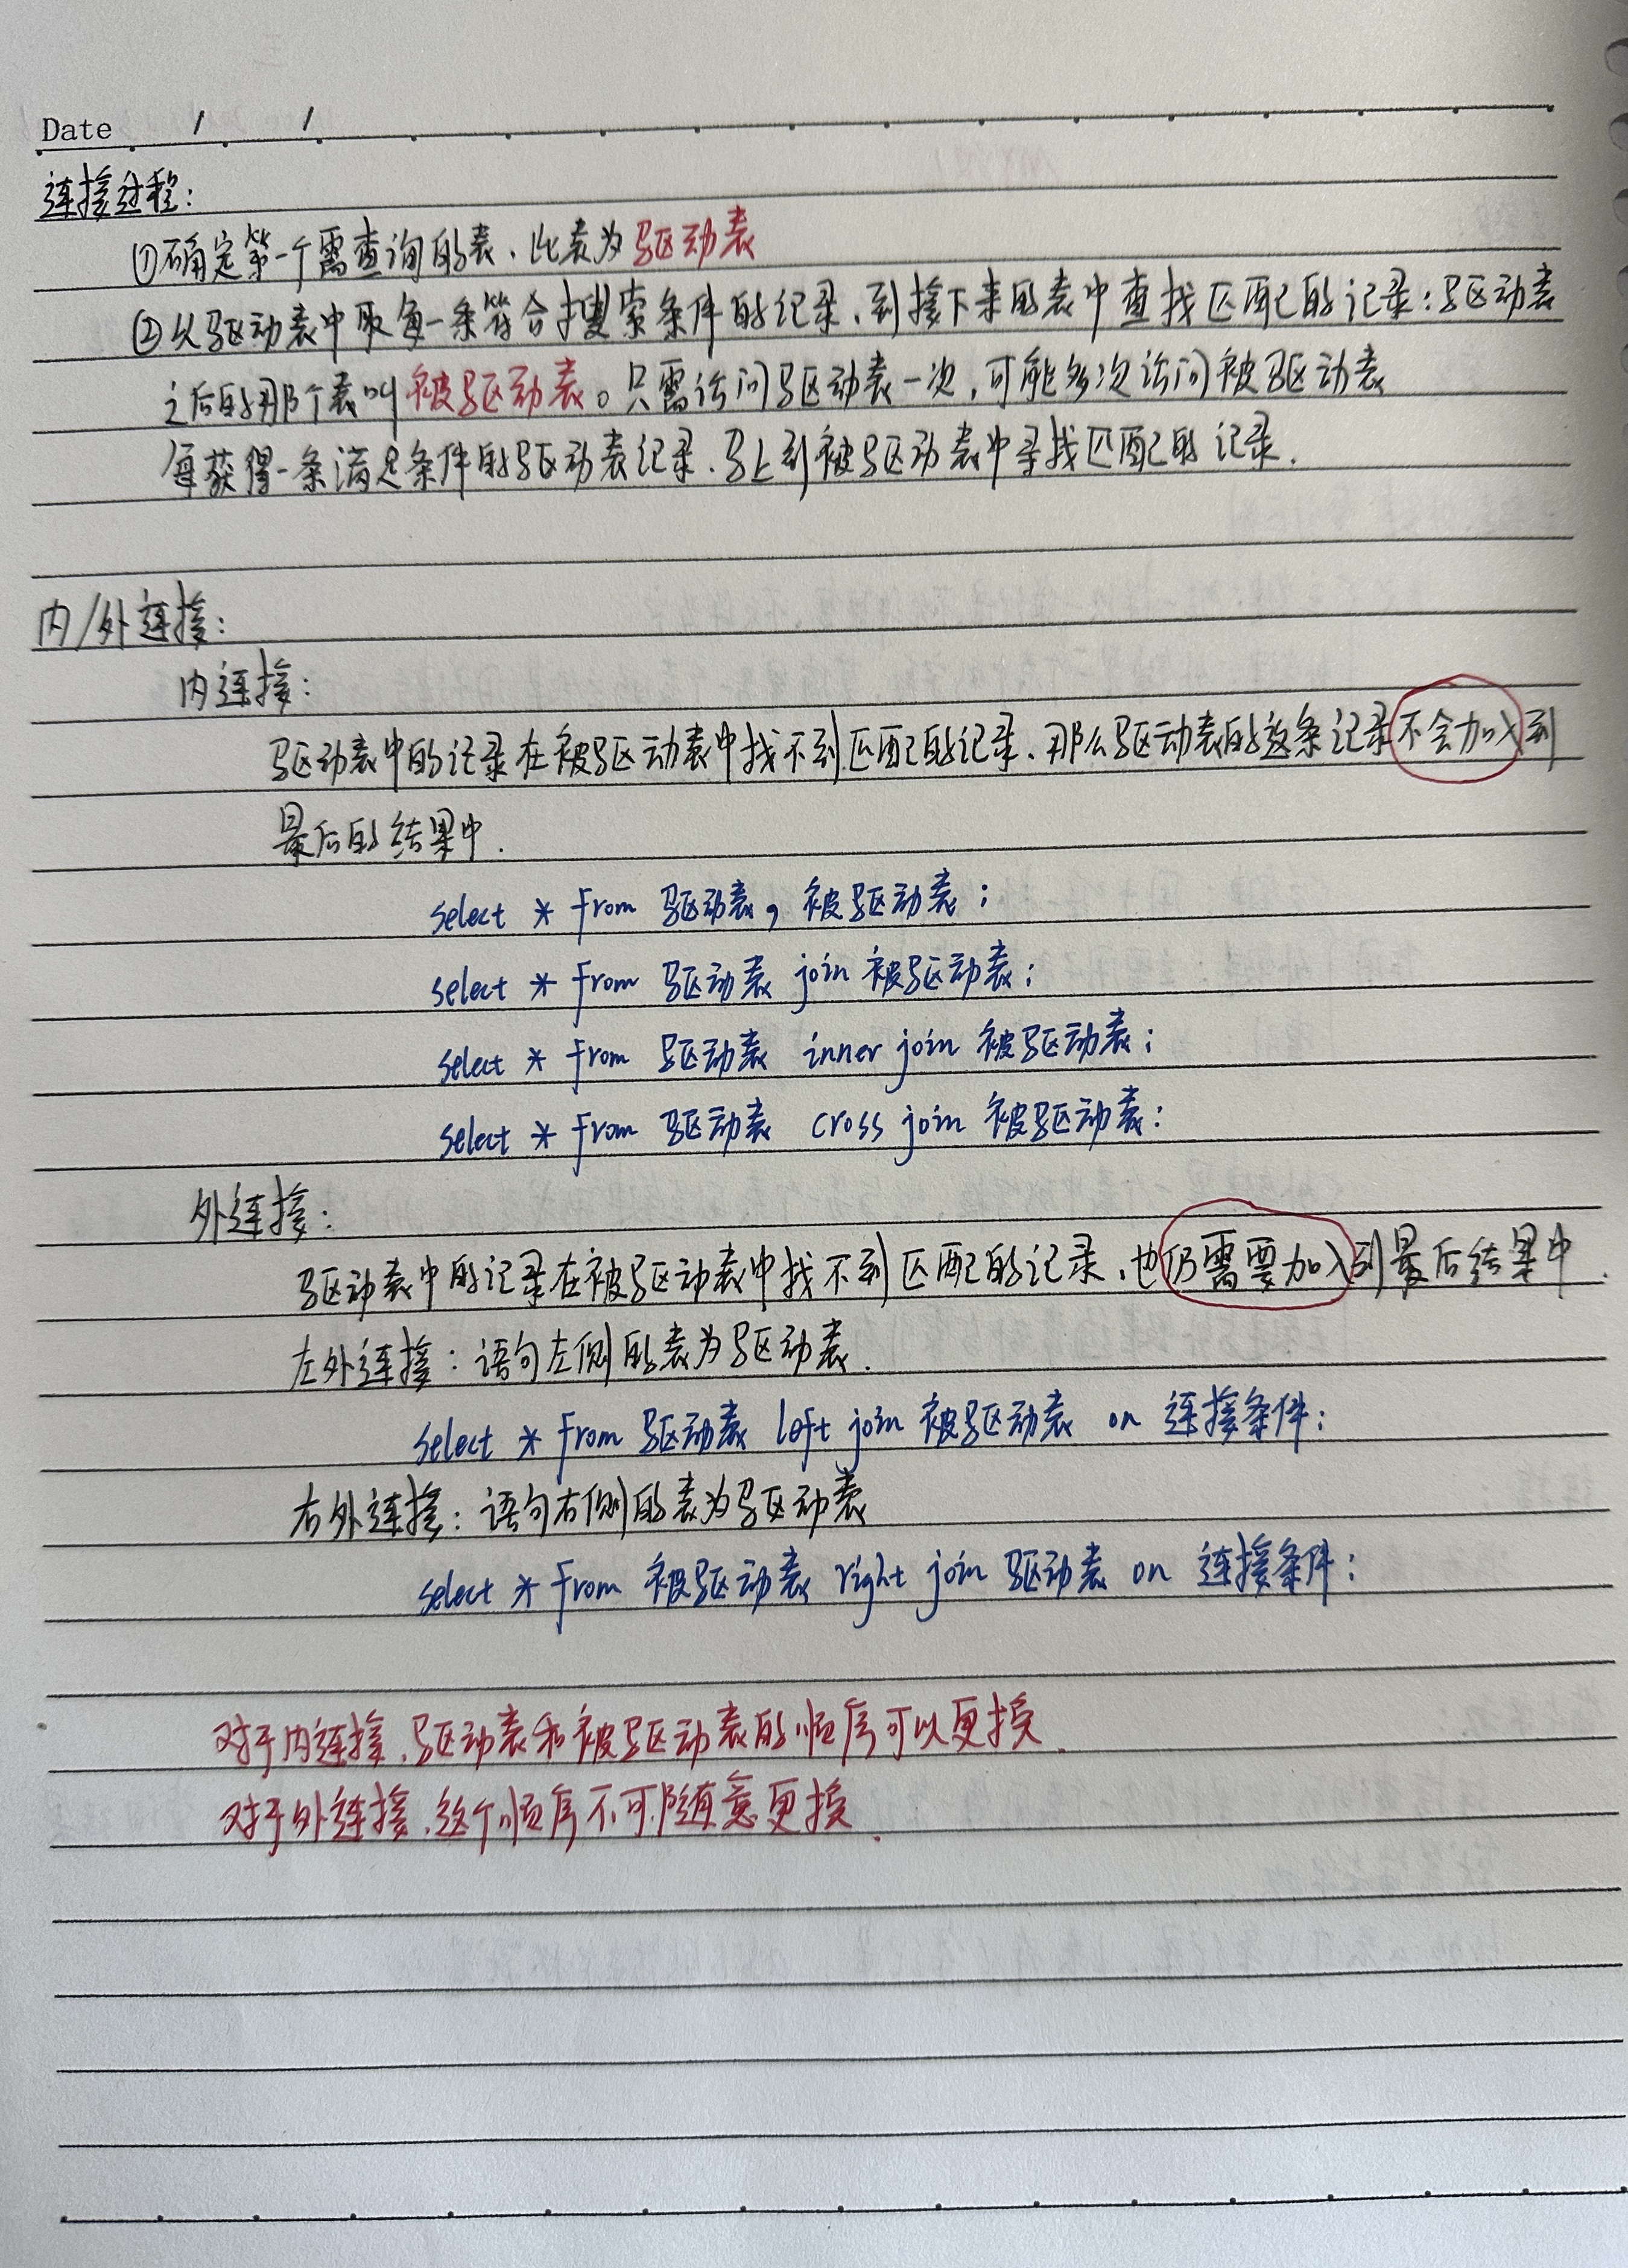 Date / /
连接过程:
①确定第一个需查询的表、此表为驱动表
②从驱动表中取每一条符合搜索条件的记录、到接下来的表中查找匹配的记录:驱动表
之后的那个表叫被驱动表。只需访问驱动表一次,可能多次访问被驱动表
每获得一条满足条件的驱动表记录、马上到被驱动表中寻找匹配的记录.
内/外连接:
内连接:
驱动表中的记录在被驱动表中找不到匹配的记录、那么驱动表的这条记录不会加入到
最后的结果中.
select * from 驱动表, 被驱动表;
select * from 驱动表 join 被驱动表;
select * from 驱动表 inner join 被驱动表;
select * from 驱动表 cross join 被驱动表;
外连接:
驱动表中的记录在被驱动表中找不到匹配的记录、也仍需要加入到最后结果中.
左外连接:语句左侧的表为驱动表.
select * from 驱动表 left join 被驱动表 on 连接条件;
右外连接:语句右侧的表为驱动表
select * from 被驱动表 right join 驱动表 on 连接条件;
对于内连接、驱动表和被驱动表的顺序可以更换.
对于外连接、这个顺序不可随意更换.